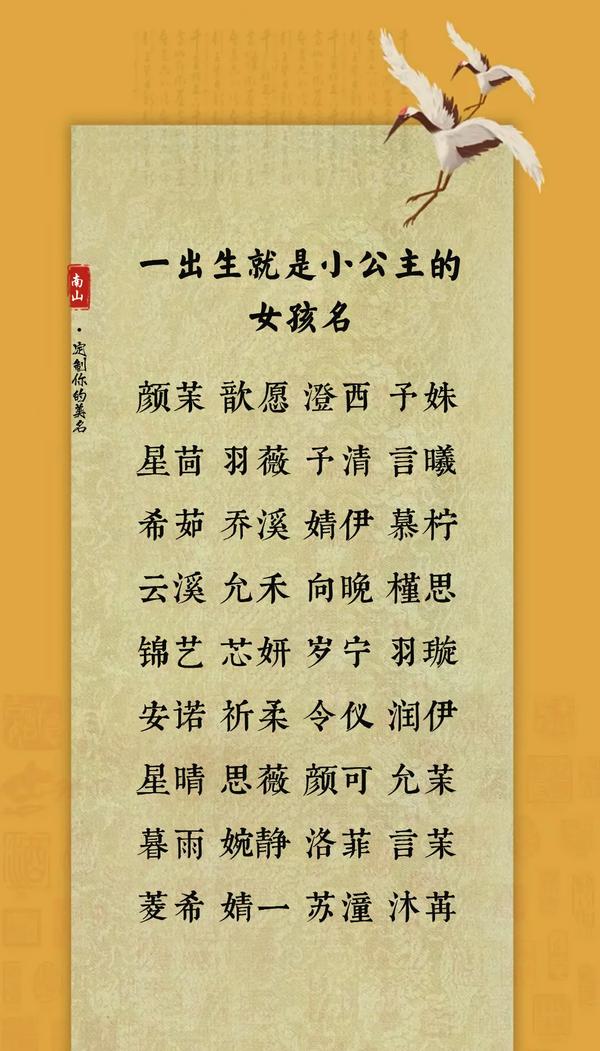 一出生就是小公主的
女孩名
南山
·定制你的美名
颜茉 歆愿 澄西 子姝
星茴 羽薇 子清 言曦
希茹 乔溪 婧伊 慕柠
云溪 允禾 向晚 槿思
锦艺 芯妍 岁宁 羽璇
安诺 祈柔 令仪 润伊
星晴 思薇 颜可 允茉
暮雨 婉静 洛菲 言茉
菱希 婧一 苏潼 沐苒